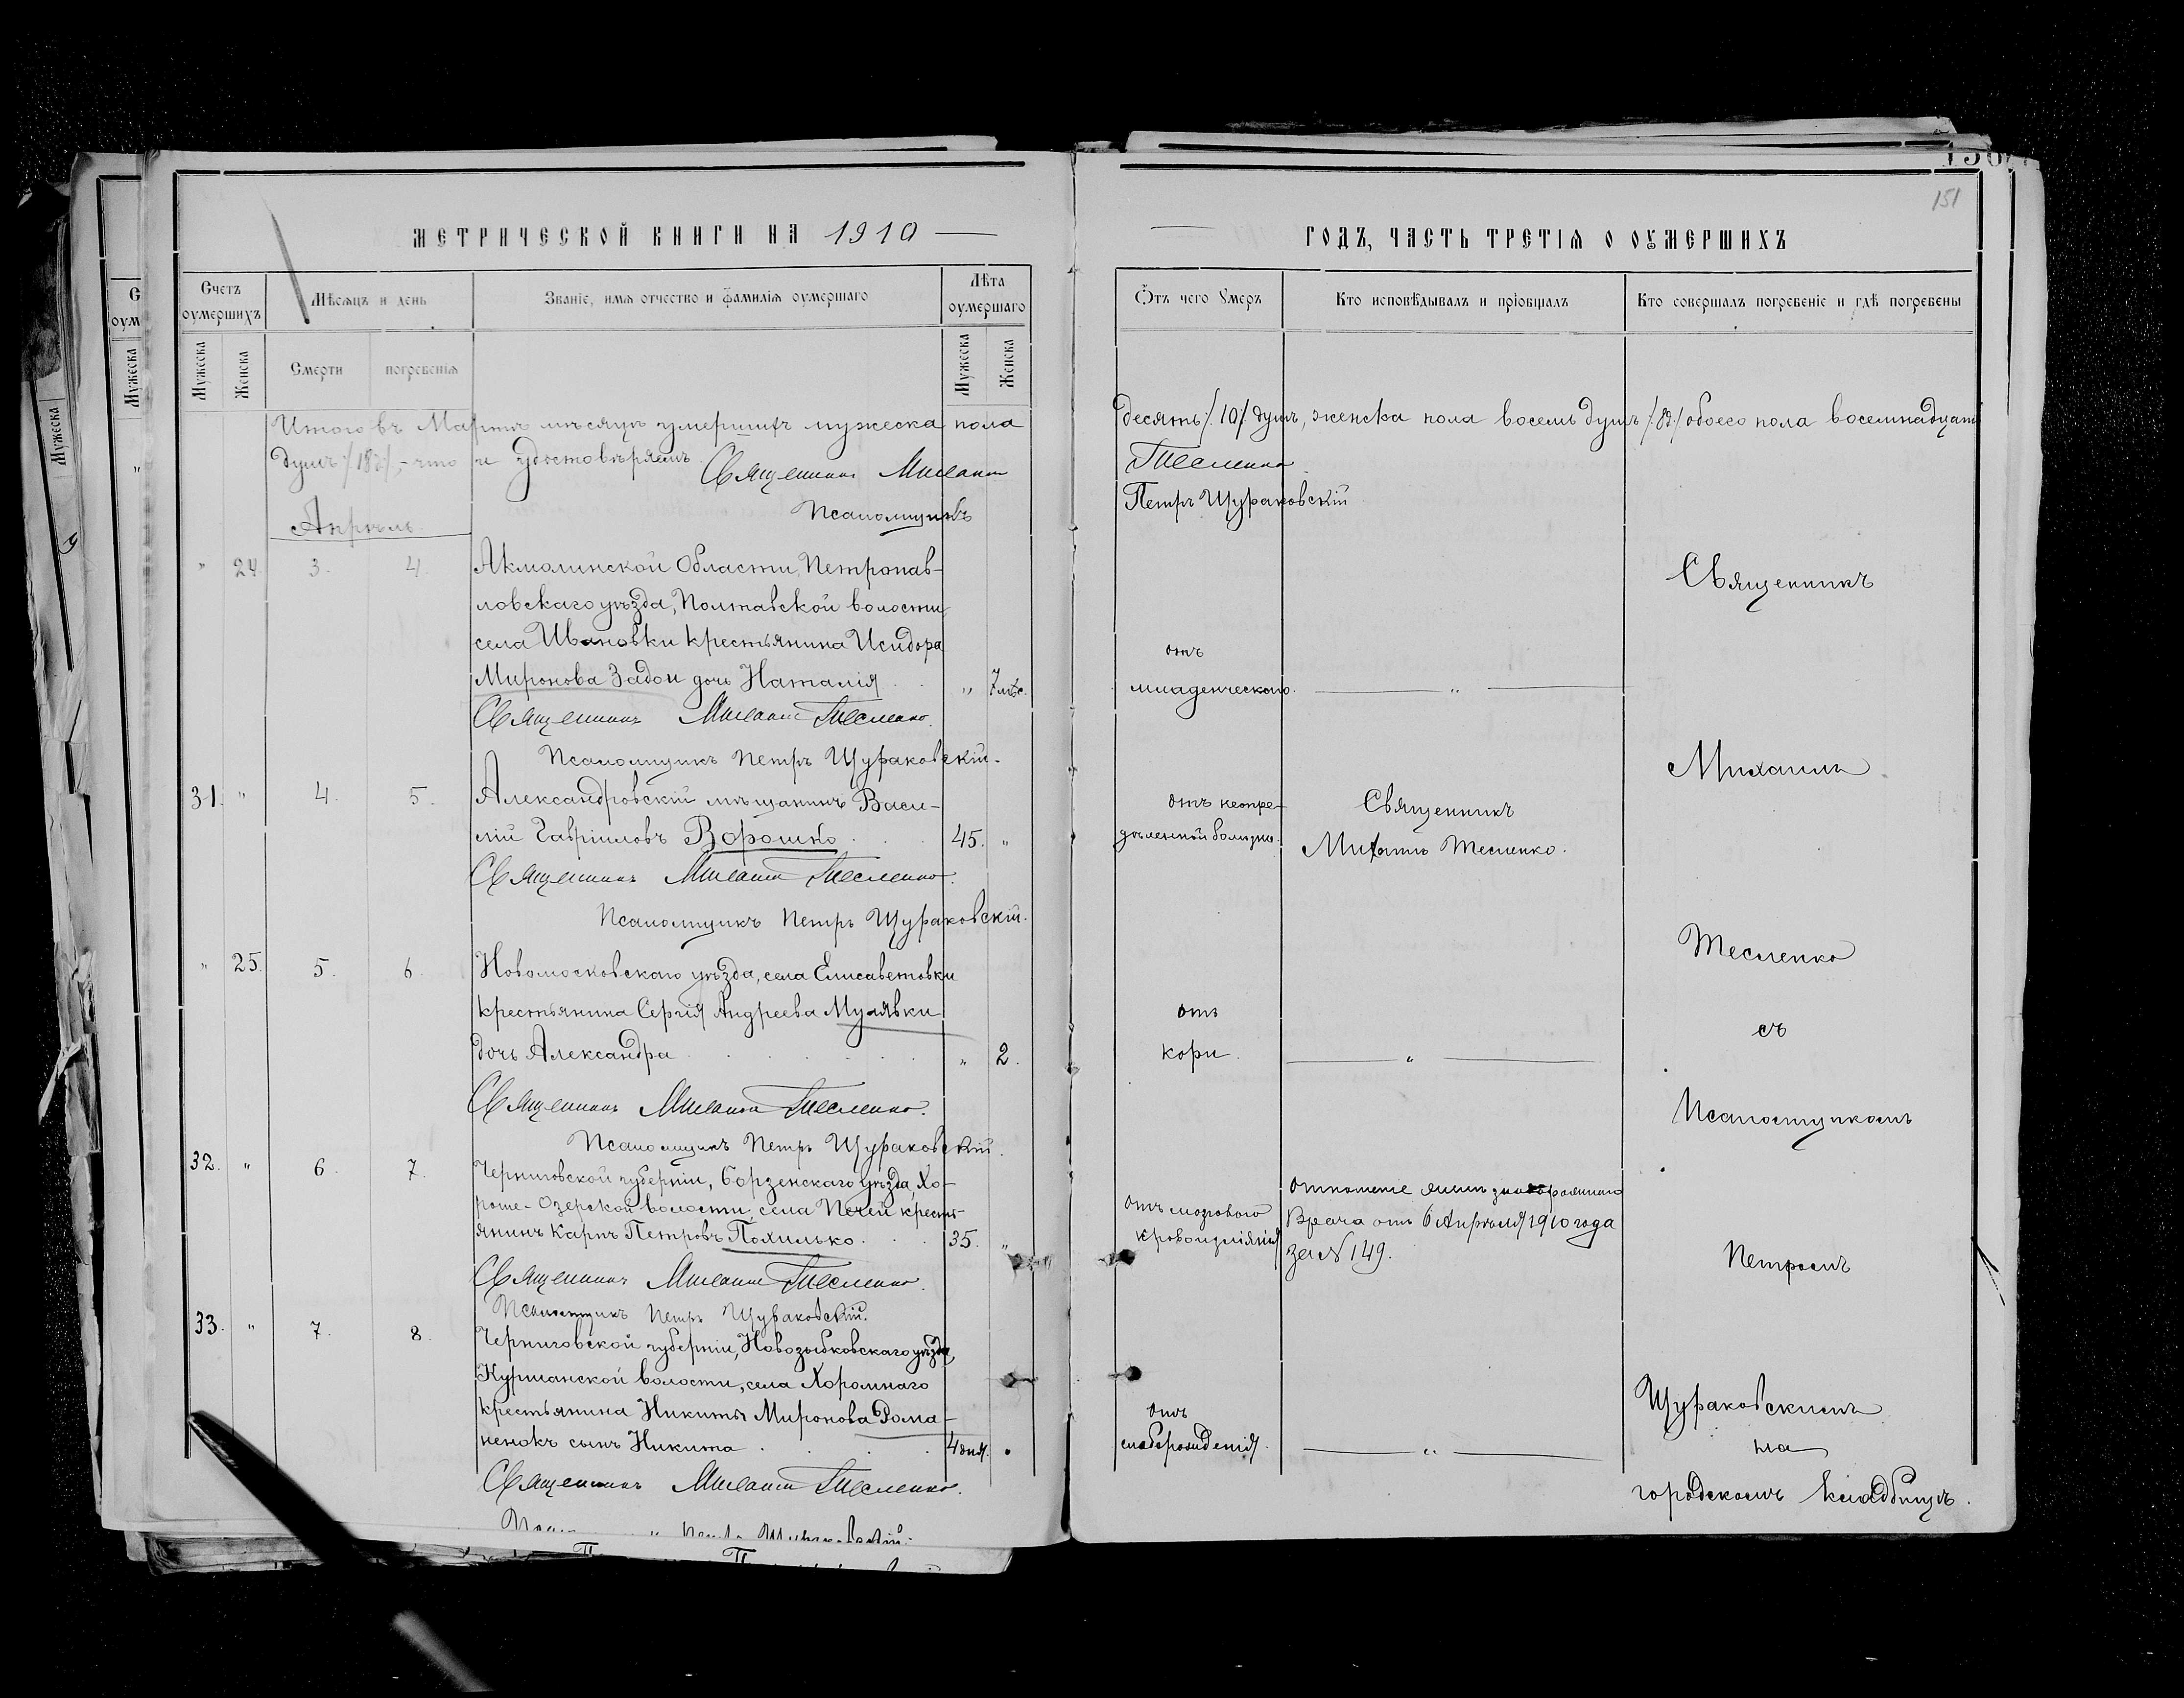 МЕТРИЧЕСКОЙ КНИГИ НА 1910
Счетъ оумершихъ
Мѣсяцъ и день
Званіе, имя отчество и фамилія оумершаго
Лѣта оумершаго
Мужеска
Женска
Смерти
погребенія
Мужеска
Женска
Итого въ Мартѣ мѣсяцѣ умершихъ мужеска пола
душъ /:18:/, - что и удостовѣряемъ
Священникъ Михаилъ
Псаломщикъ
Апрѣль.
" 24. 3. 4. Акмолинской Области, Петропав-
ловскаго уѣзда, Полтавской волости
села Ивановки крестьянина Исидора
Миронова Задои дочь Наталія . . " 7 мѣс.
Священникъ Михаилъ Тесленко.
Псаломщикъ Петръ Щураковскій.
31. " 4. 5. Александровскій мѣщанинъ Васи-
лій Гавріиловъ Ворошко . . . 45. "
Священникъ Михаилъ Тесленко.
Псаломщикъ Петръ Щураковскій.
" 25. 5. 6. Новомосковскаго уѣзда, села Елисаветовки
крестьянина Сергія Андреева Мулявки
дочь Александра . . . . . " 2.
Священникъ Михаилъ Тесленко.
Псаломщикъ Петръ Щураковскій.
32. " 6. 7. Черниговской губерніи, Борзенскаго уѣзда, Хо-
роше-Озерской волости, села Печей кресть-
янинъ Карпъ Петровъ Похилько . . . 35. "
Священникъ Михаилъ Тесленко.
Псаломщикъ Петръ Щураковскій.
33. " 7. 8. Черниговской губерніи, Новозыбковскаго уѣзда,
Курманской волости, села Хоромнаго
крестьянина Никиты Миронова Рома-
ненокъ сынъ Никита . . . . 4 дня. "
Священникъ Михаилъ Тесленко.
Петръ Щураковскій.
151
ГОДЪ, ЧАСТЬ ТРЕТІЯ О ОУМЕРШИХЪ
Отъ чего Умеръ
Кто исповѣдывалъ и пріобщалъ
Кто совершалъ погребеніе и гдѣ погребены
десять /:10:/ душъ, женска пола восемь душъ /:8:/ обоего пола восемнадцать
Тесленко
Петръ Щураковскій
отъ
младенческаго. "
отъ неопре-
дѣленной болѣзни.
Священникъ
Михаилъ Тесленко.
отъ
кори. "
отъ мозгового
кровоизліянія
Отношеніе
Врача отъ 6 Апрѣля 1910 года
за № 149.
отъ
слаборожденія. "
Священникъ
Михаилъ
Тесленко
съ
Псаломщикомъ
Петромъ
Щураковскимъ
на
городскомъ кладбищѣ.